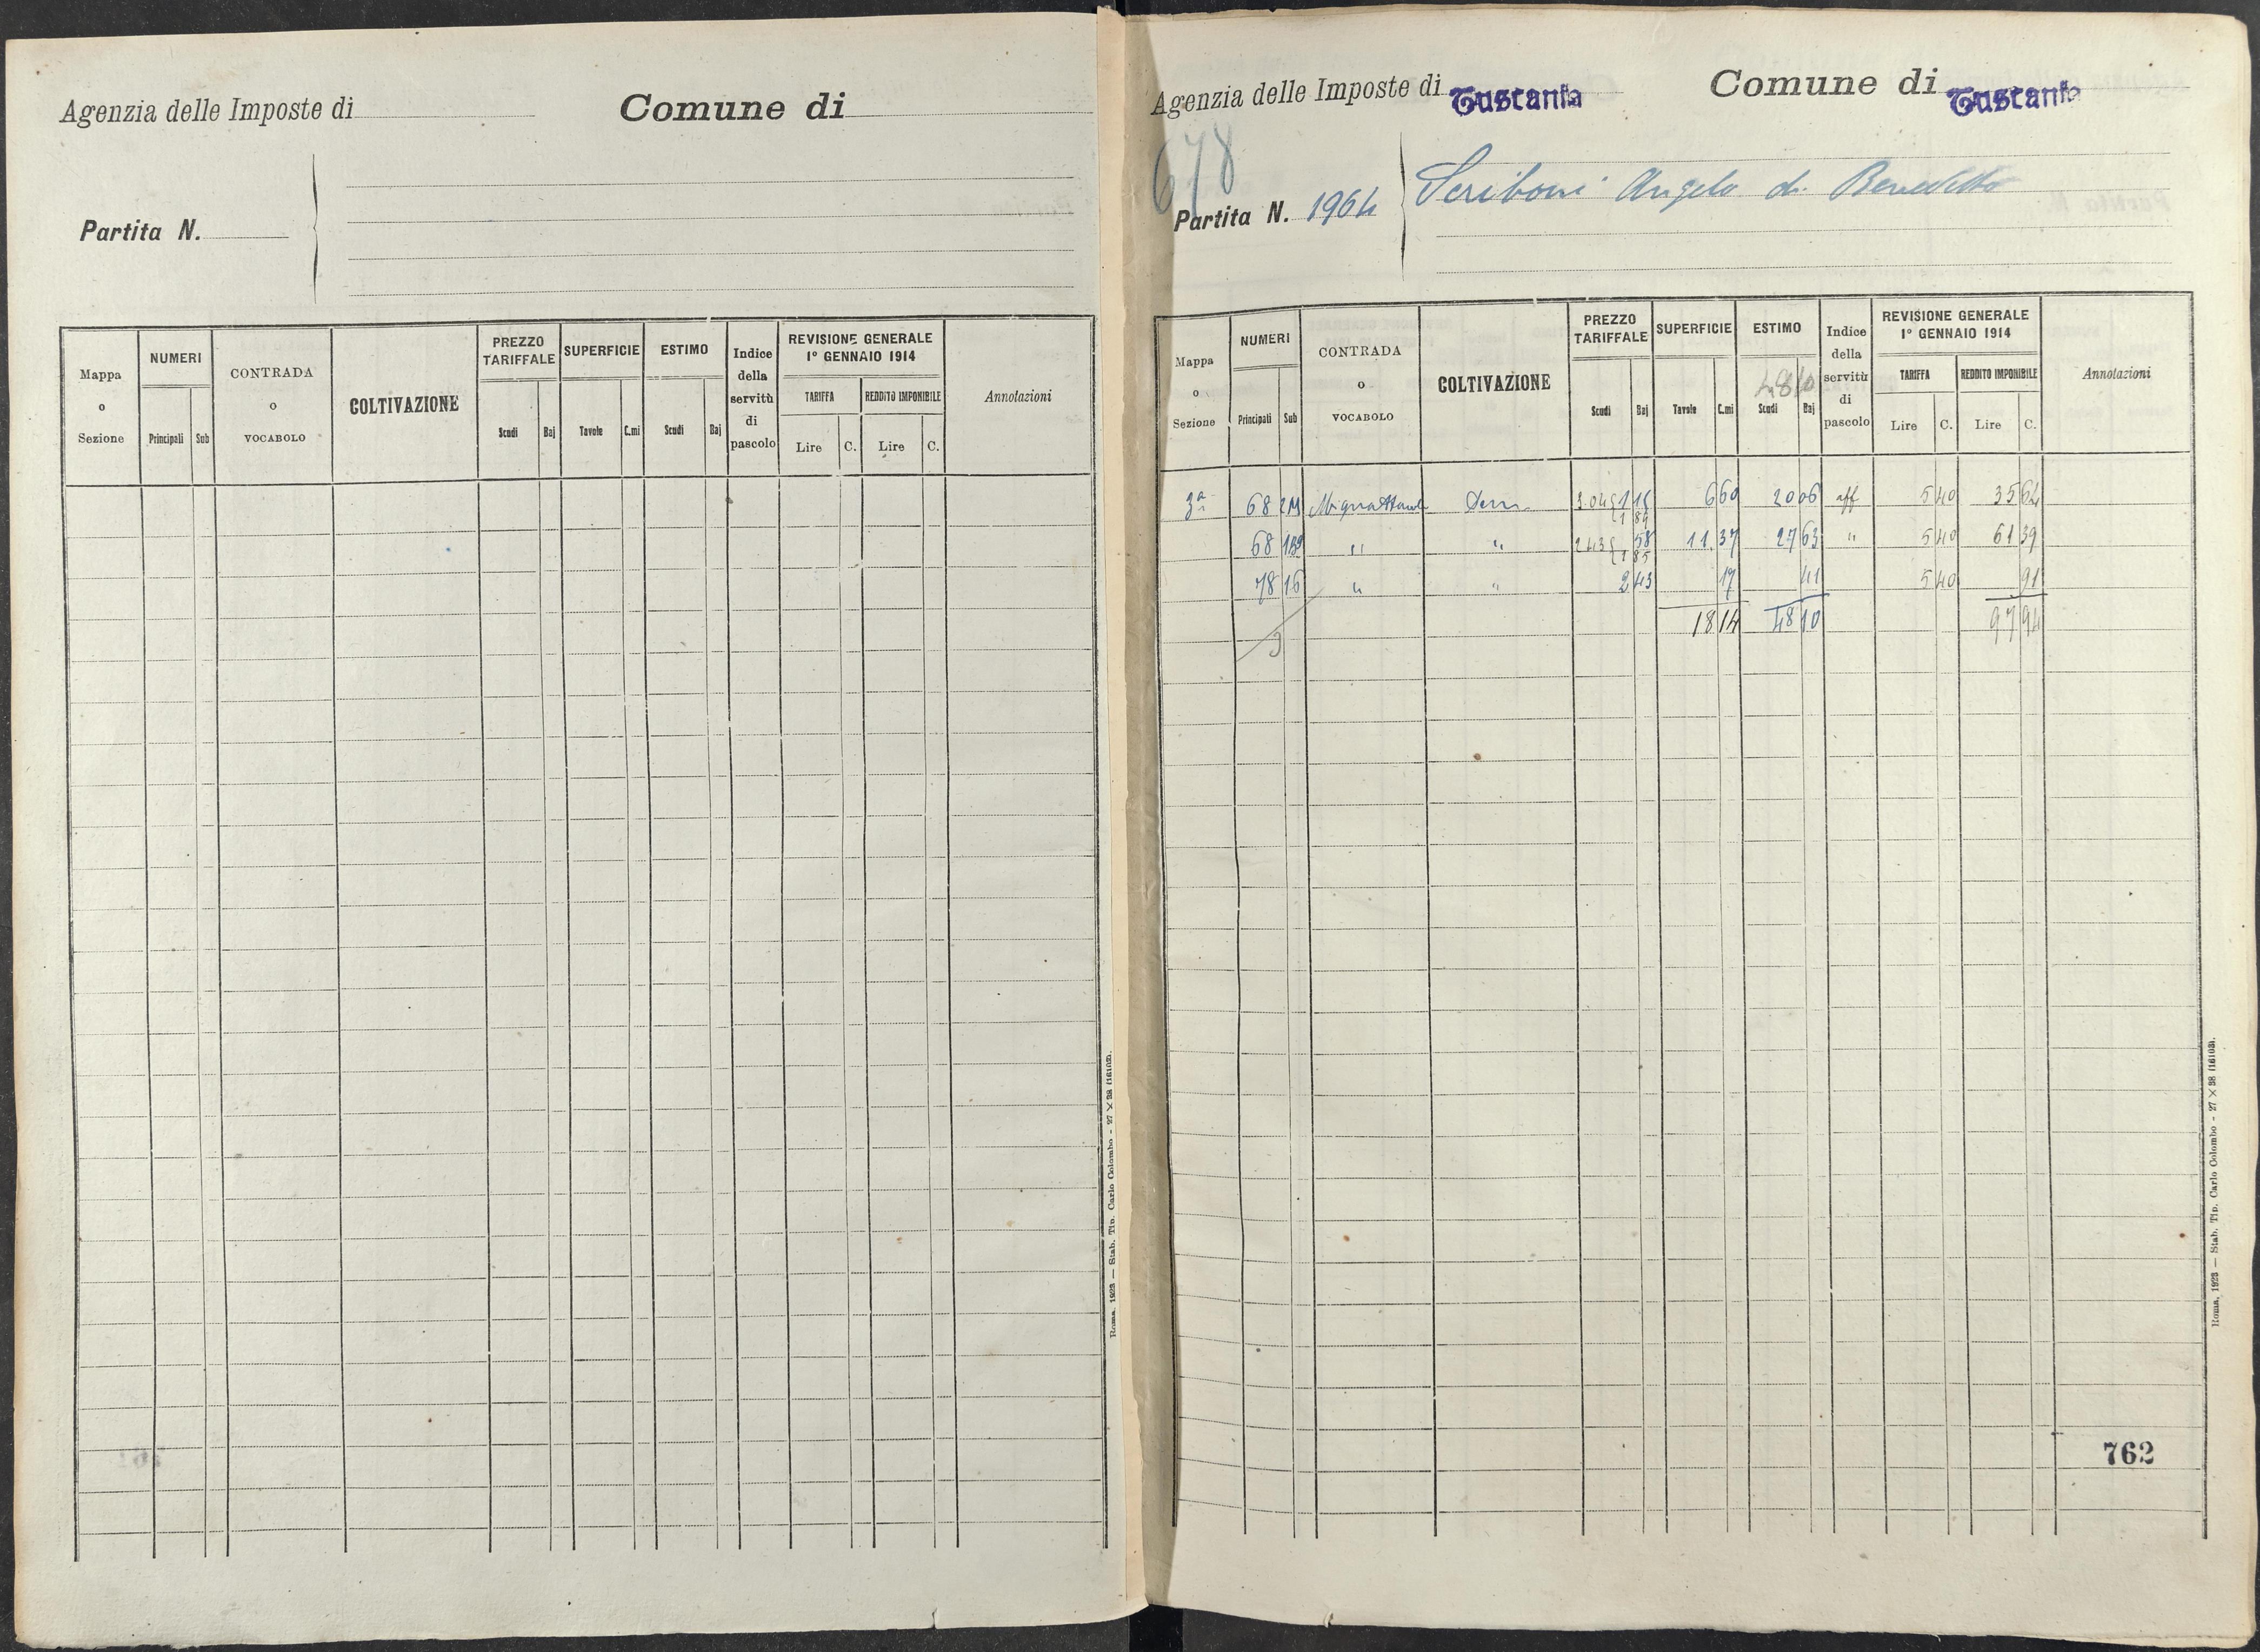 Agenzia delle Imposte di Comune di
Partita N.
Mappa o Sezione NUMERI Principali Sub CONTRADA o VOCABOLO COLTIVAZIONE PREZZO TARIFFALE Scudi Baj SUPERFICIE Tavole C.mi ESTIMO Scudi Baj Indice della servitù di pascolo REVISIONE GENERALE 1° GENNAIO 1914 TARIFFA Lire C. REDDITO IMPONIBILE Lire C. Annotazioni
Roma, 1923 — Stab. Tip. Carlo Colombo - 27 × 38 (16103).
Agenzia delle Imposte di Tuscania Comune di Tuscania
678
Partita N. 1964 Scriboni Angelo di Benedetto
Mappa o Sezione NUMERI Principali Sub CONTRADA o VOCABOLO COLTIVAZIONE PREZZO TARIFFALE Scudi Baj SUPERFICIE Tavole C.mi ESTIMO 4810 Scudi Baj Indice della servitù di pascolo REVISIONE GENERALE 1° GENNAIO 1914 TARIFFA Lire C. REDDITO IMPONIBILE Lire C. Annotazioni
3ª 68 Sem. 3.04 6 60 20 06 aff 5 40 35 64
68 " " 2 43 11.37 27 63 " 5 40 61 39
78 16 " " 2 43 17 41 5 40 91
18 14 48 10 97 94
762
Roma, 1923 — Stab. Tip. Carlo Colombo - 27 × 38 (16103).